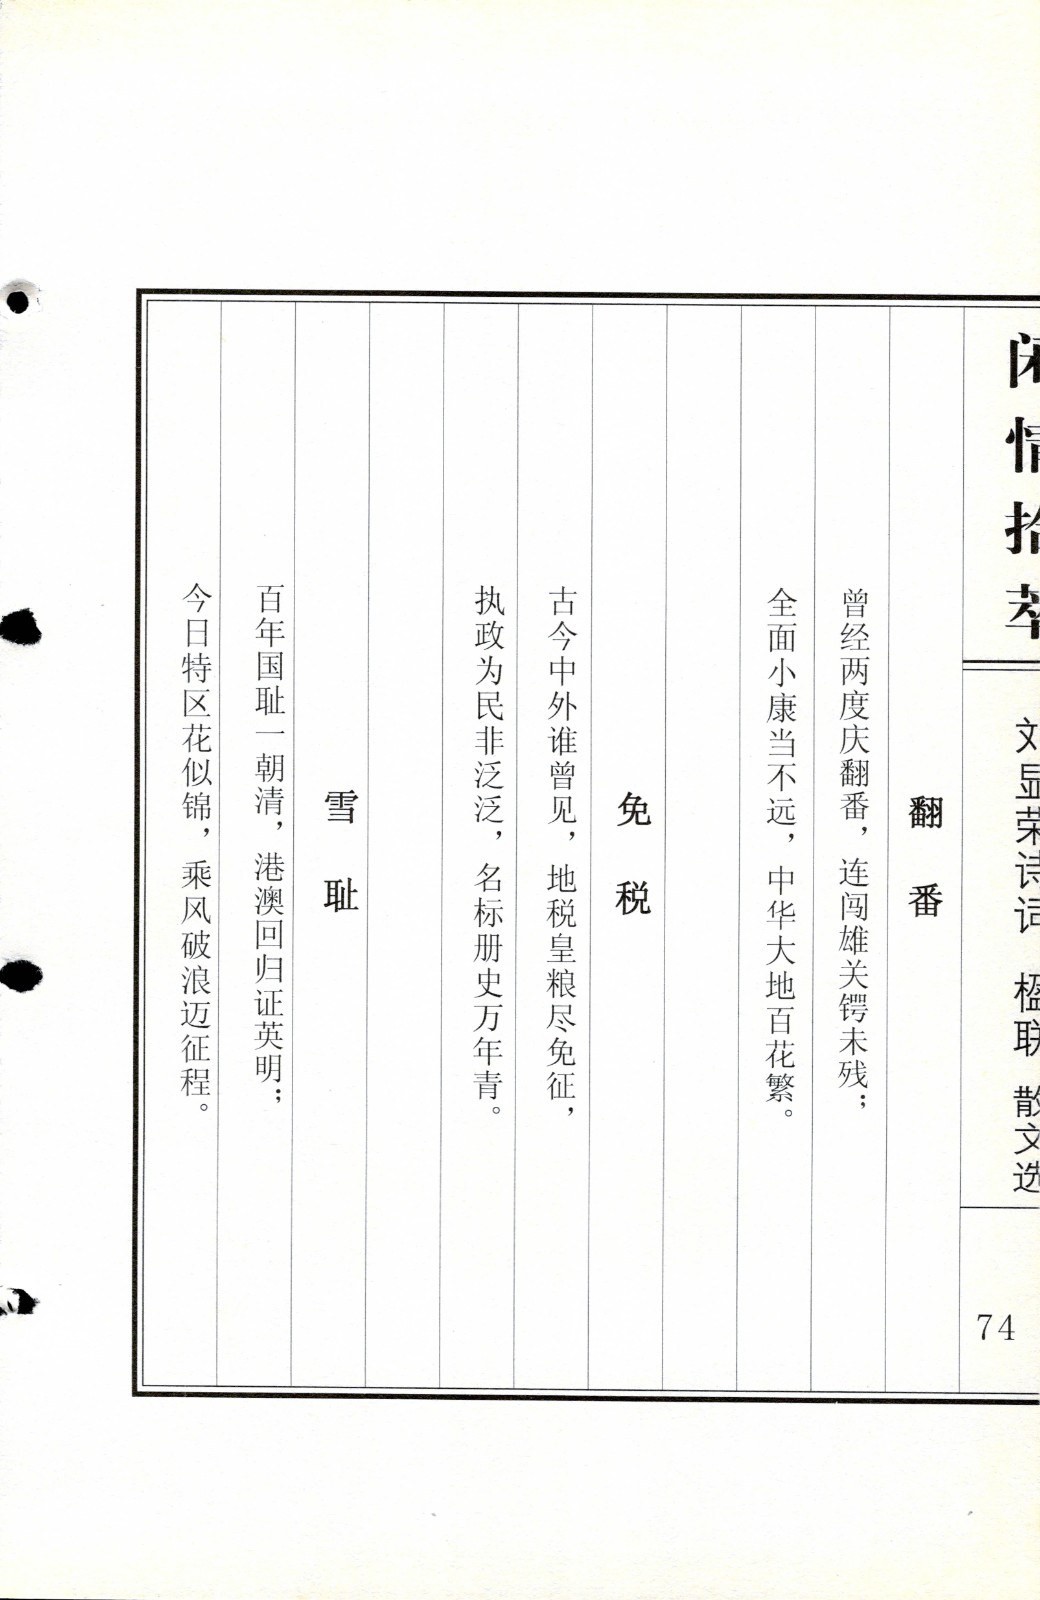 闲情拾萃
刘显荣诗词 楹联 散文选
74
翻番
曾经两度庆翻番，连闯雄关锷未残；
全面小康当不远，中华大地百花繁。
免税
古今中外谁曾见，地税皇粮尽免征，
执政为民非泛泛，名标册史万年青。
雪耻
百年国耻一朝清，港澳回归证英明；
今日特区花似锦，乘风破浪迈征程。